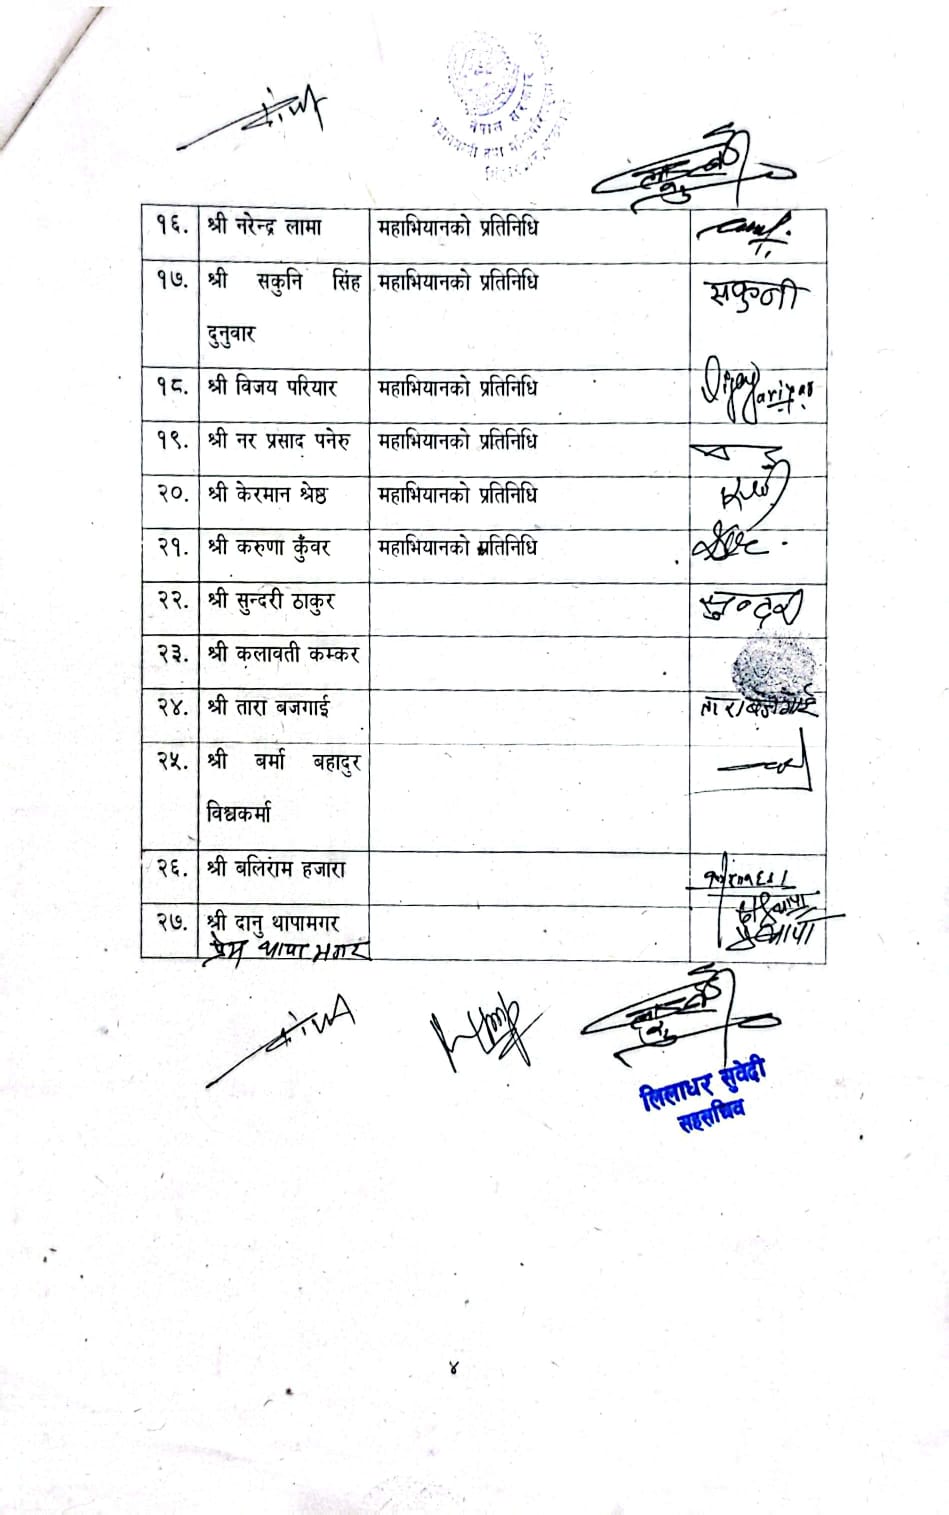 नेपाल सरकार
१६. श्री नरेन्द्र लामा महाभियानको प्रतिनिधि
१७. श्री सकुनि सिंह महाभियानको प्रतिनिधि सकुनी
दुनुवार
१८. श्री विजय परियार महाभियानको प्रतिनिधि Vijay Pariyar
१९. श्री नर प्रसाद पनेरु महाभियानको प्रतिनिधि
२०. श्री केरमान श्रेष्ठ महाभियानको प्रतिनिधि
२१. श्री करुणा कुँवर महाभियानको प्रतिनिधि
२२. श्री सुन्दरी ठाकुर
२३. श्री कलावती कम्कर
२४. श्री तारा बजगाई तारा बजगाई
२५. श्री बर्मा बहादुर
विश्वकर्मा
२६. श्री बलिराम हजारा
२७. श्री दानु थापामगर
प्रेम थापा मगर
लिलाधर सुवेदी
सहसचिव
४